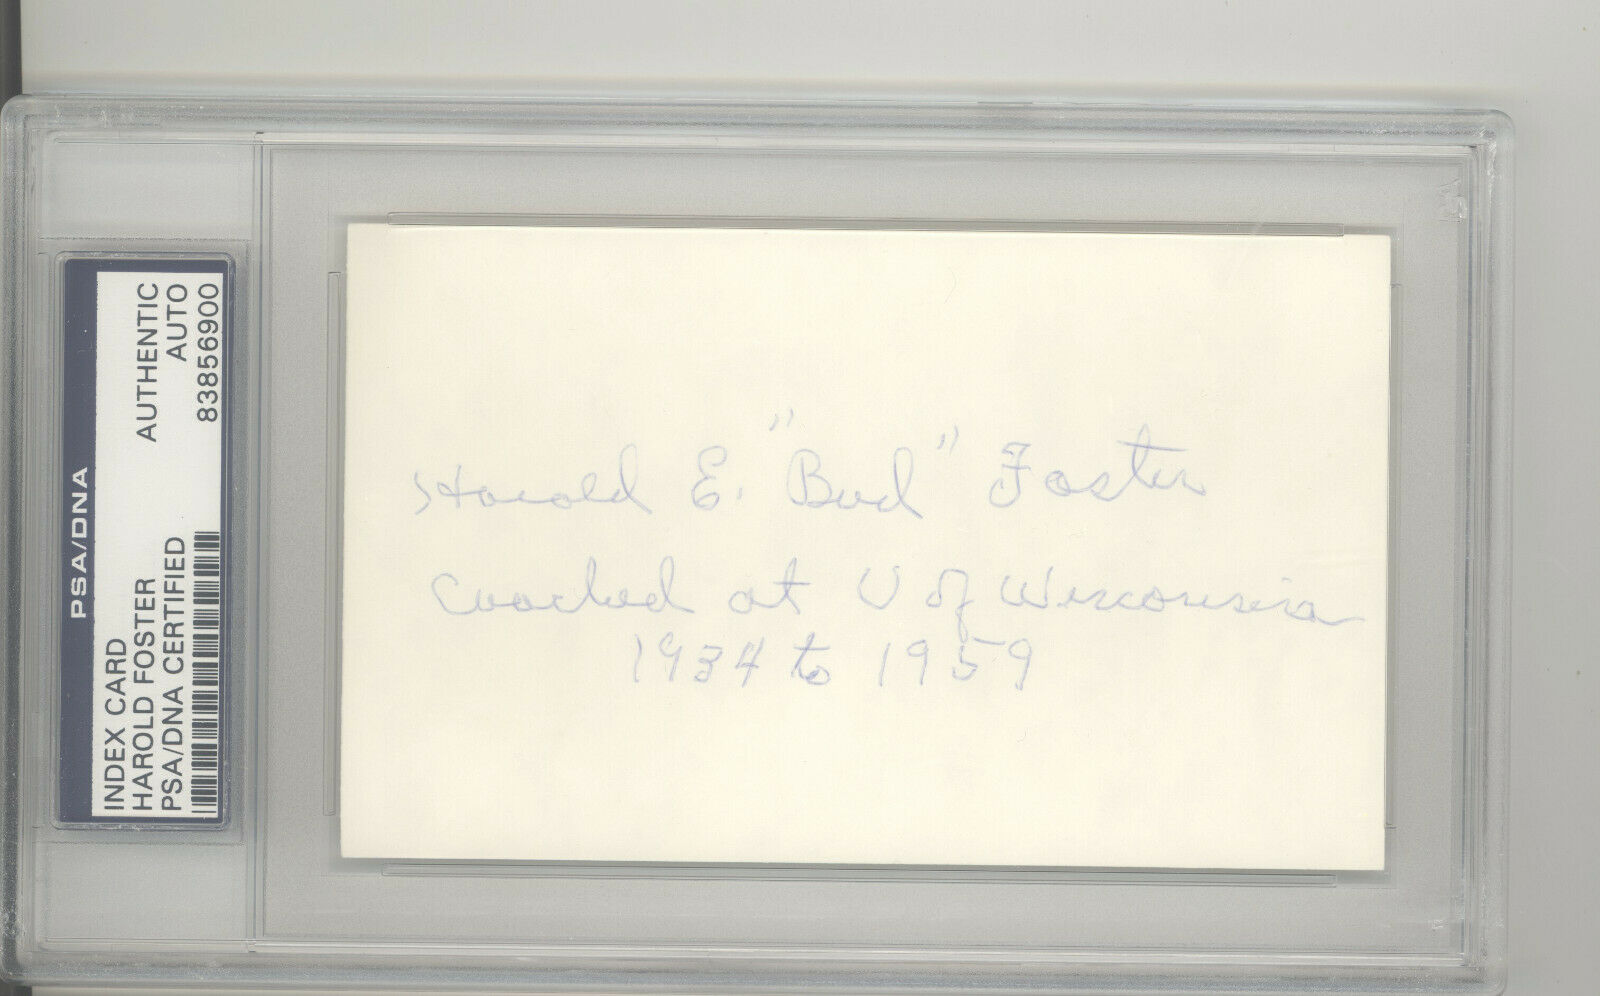 PSA/DNA
INDEX CARD
HAROLD FOSTER
PSA/DNA CERTIFIED
AUTHENTIC
AUTO
83856900
Harold E. "Bud" Foster
Coached at U of Wisconsin
1934 to 1959